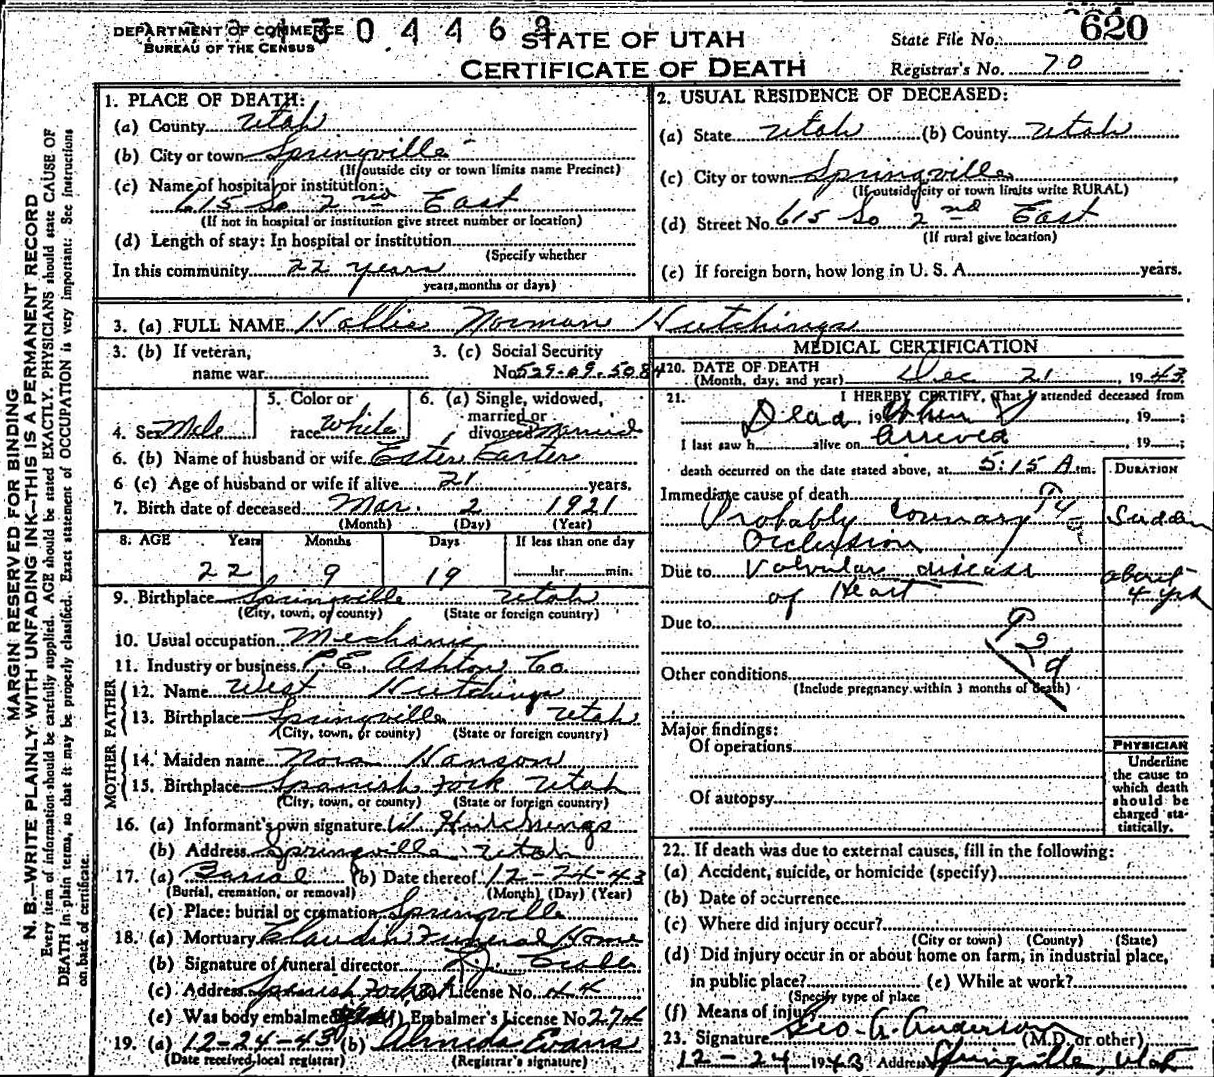 DEPARTMENT OF COMMERCE
BUREAU OF THE CENSUS
1304468
STATE OF UTAH
CERTIFICATE OF DEATH
State File No. 620
Registrar's No. 70
MARGIN RESERVED FOR BINDING
N. B.—WRITE PLAINLY WITH UNFADING INK—THIS IS A PERMANENT RECORD
Every item of information should be carefully supplied. AGE should be stated EXACTLY. PHYSICIANS should state CAUSE OF
DEATH in plain terms, so that it may be properly classified. Exact statement of OCCUPATION is very important: See instructions
on back of certificate.
1. PLACE OF DEATH:
(a) County Utah
(b) City or town Springville
(If outside city or town limits name Precinct)
(c) Name of hospital or institution:
615 So 2nd East
(If not in hospital or institution give street number or location)
(d) Length of stay: In hospital or institution
(Specify whether
In this community 22 years
years, months or days)
2. USUAL RESIDENCE OF DECEASED:
(a) State Utah (b) County Utah
(c) City or town Springville
(If outside city or town limits write RURAL)
(d) Street No. 615 So 2nd East
(If rural give location)
(e) If foreign born, how long in U. S. A. years.
3. (a) FULL NAME Hollis Norman Hutchings
3. (b) If veteran,
name war
3. (c) Social Security
No. 529-09-5084
4. Sex Male
5. Color or
race White
6. (a) Single, widowed,
married or
divorced Married
6. (b) Name of husband or wife Ester Carter
6 (c) Age of husband or wife if alive 21 years.
7. Birth date of deceased Mar. 2 1921
(Month) (Day) (Year)
8. AGE Years Months Days If less than one day
22 9 19 hr. min.
9. Birthplace Springville Utah
(City, town, or county) (State or foreign country)
10. Usual occupation Mechanic
11. Industry or business P.E. Ashton Co
FATHER
12. Name West Hutchings
13. Birthplace Springville Utah
(City, town, or county) (State or foreign country)
MOTHER
14. Maiden name Nora Hanson
15. Birthplace Spanish Fork Utah
(City, town, or county) (State or foreign country)
16. (a) Informant's own signature W. Hutchings
(b) Address Springville Utah
17. (a) Burial (b) Date thereof 12-24-43
(Burial, cremation, or removal) (Month) (Day) (Year)
(c) Place: burial or cremation Springville
18. (a) Mortuary Claudin Funeral Home
(b) Signature of funeral director
(c) Address Spanish Fork License No. 44
(e) Was body embalmed (f) Embalmer's License No 274
19. (a) 12-24-43 (b) Almeda Evans
(Date received local registrar) (Registrar's signature)
MEDICAL CERTIFICATION
20. DATE OF DEATH
(Month, day, and year) Dec 21, 1943
21. I HEREBY CERTIFY, That I attended deceased from
Dead, 19 When I, 19 ;
I last saw h alive on arrived, 19 ;
death occurred on the date stated above, at 5:15 A.m.
DURATION
Immediate cause of death
Probably Coronary Sudden
Occlusion
Due to Valvular disease about
of Heart 4 yrs
Due to
Other conditions
(Include pregnancy within 3 months of death)
Major findings:
Of operations
Of autopsy
PHYSICIAN
Underline
the cause to
which death
should be
charged sta-
tistically.
22. If death was due to external causes, fill in the following:
(a) Accident, suicide, or homicide (specify)
(b) Date of occurrence
(c) Where did injury occur?
(City or town) (County) (State)
(d) Did injury occur in or about home on farm, in industrial place,
in public place? (e) While at work?
(Specify type of place
(f) Means of injury
23. Signature Geo. A. Anderson (M.D. or other)
12-24 1943 Address Springville, Utah